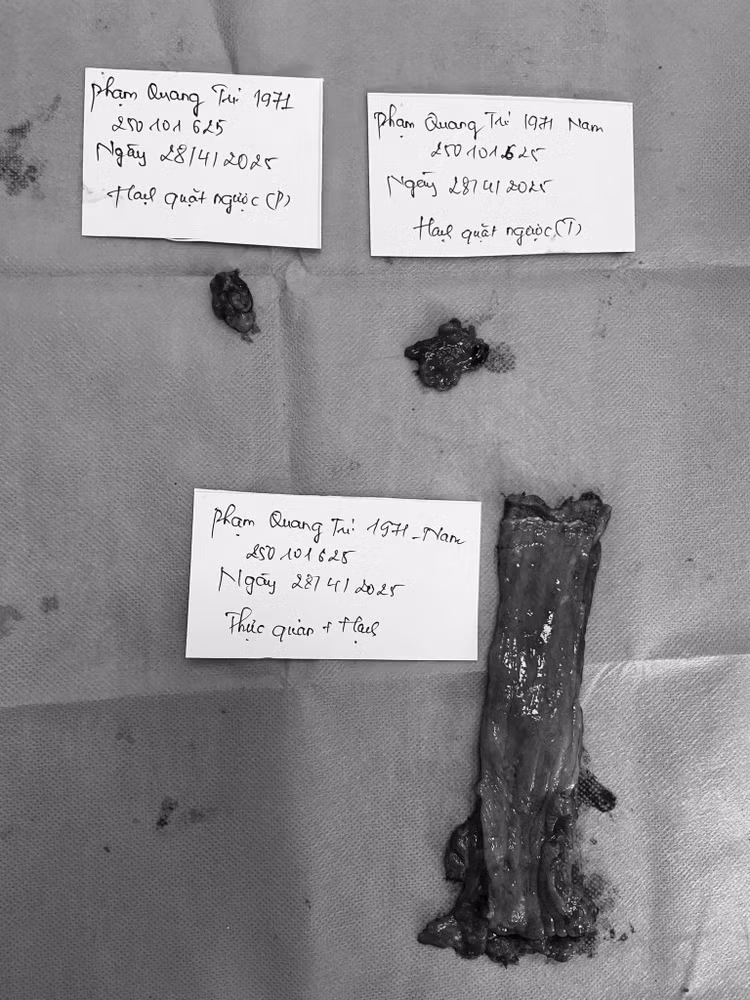 Phạm Quang Trí 1971
250101625
Ngày 28/4/2025
Hạch quặt ngược (P)
Phạm Quang Trí 1971 Nam
250101625
Ngày 28/4/2025
Hạch quặt ngược (T)
Phạm Quang Trí 1971 - Nam
250101625
Ngày 28/4/2025
Thực quản + Hạch